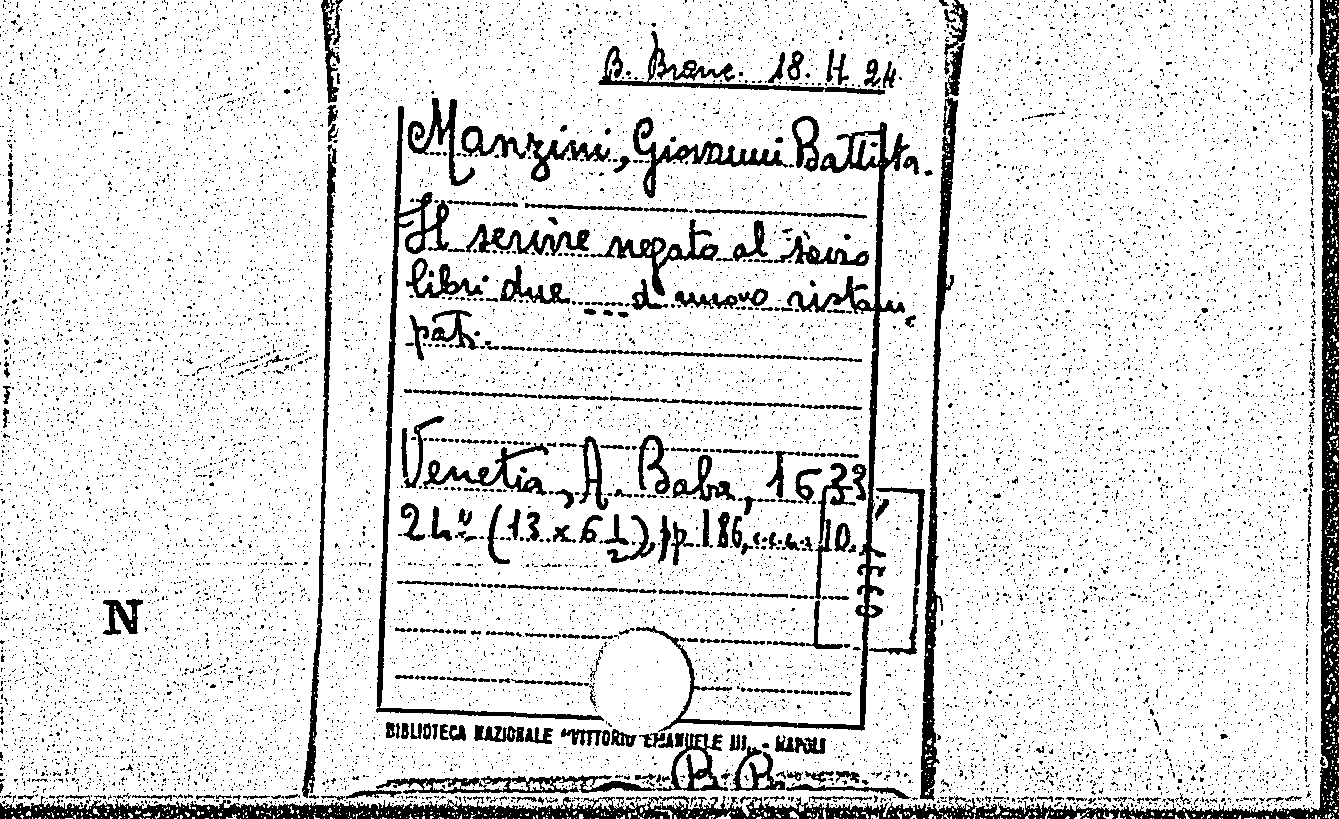 B. Branc. 18. H 24
Manzini, Giovanni Battista.
Il servire negato al savio
libri due ... di nuovo ristam,
pati.
Venetia, A. Baba, 1633,
24º (13 x 6 1/2), pp 186, c.c.n. 10.
N
BIBLIOTECA NAZIONALE "VITTORIO EMANUELE III" - NAPOLI
B. B.